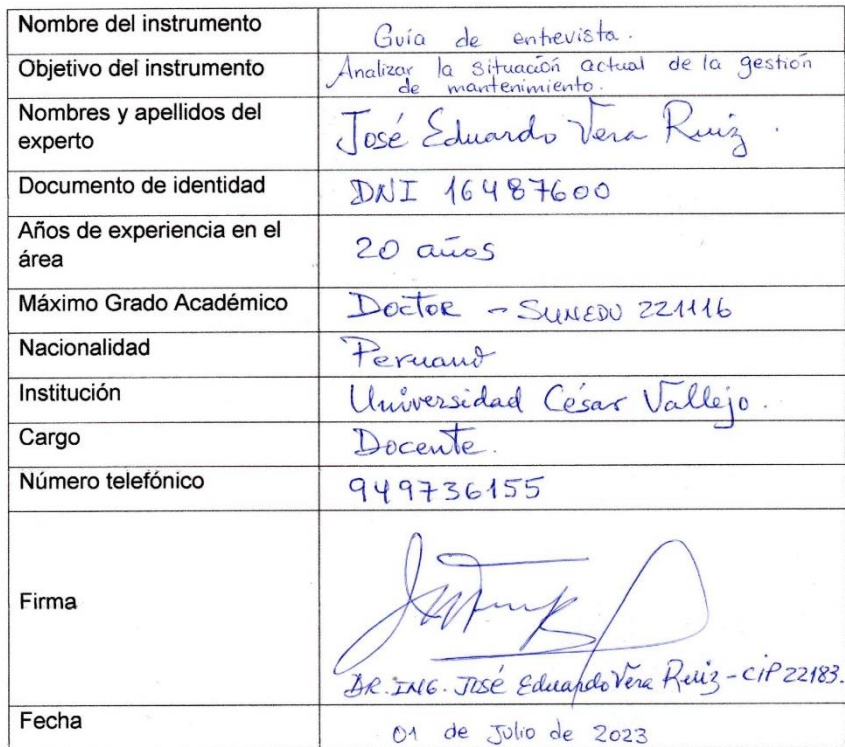 Nombre del instrumento
Guía de entrevista.
Objetivo del instrumento
Analizar la situación actual de la gestión
de mantenimiento.
Nombres y apellidos del
experto
José Eduardo Vera Ruiz.
Documento de identidad
DNI 16487600
Años de experiencia en el
área
20 años
Máximo Grado Académico
Doctor - SUNEDU 221116
Nacionalidad
Peruano
Institución
Universidad César Vallejo.
Cargo
Docente.
Número telefónico
949736155
Firma
DR. ING. José Eduardo Vera Ruiz - CIP 22183.
Fecha
01 de Julio de 2023